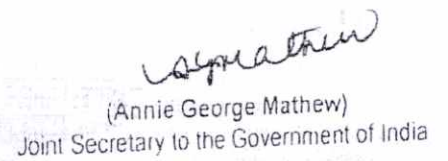 (Annie George Mathew)
Joint Secretary to the Government of India